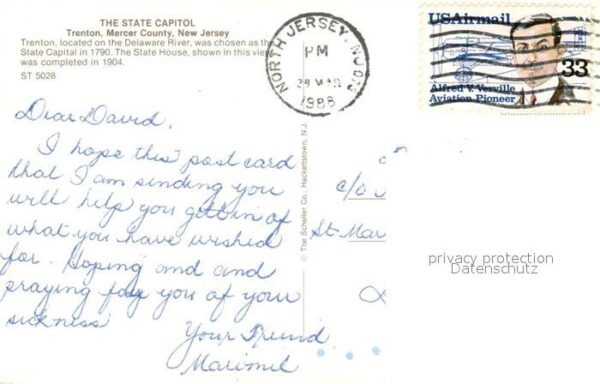 THE STATE CAPITOL
Trenton, Mercer County, New Jersey
Trenton, located on the Delaware River, was chosen as the
State Capital in 1790. The State House, shown in this view
was completed in 1904.
ST 5028
NORTH JERSEY, NJ 073
PM
29 MAR
1988
USAirmail
33
Alfred V. Verville
Aviation Pioneer
Dear David,
I hope this post card
that I am sending you
will help you getting of
what you have wished
for. Hoping and and
praying for you of your
sickness
Your Friend
© The Scheller Co., Hackettstown, N.J.
c/o
St Mar
privacy protection
Datenschutz